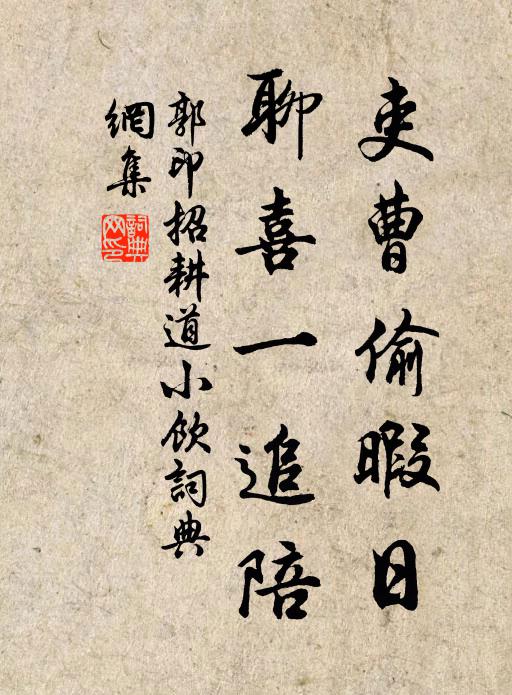 吏曹偷暇日
聊喜一追陪
郭印招耕道小飲詞典
網集
詞典网印